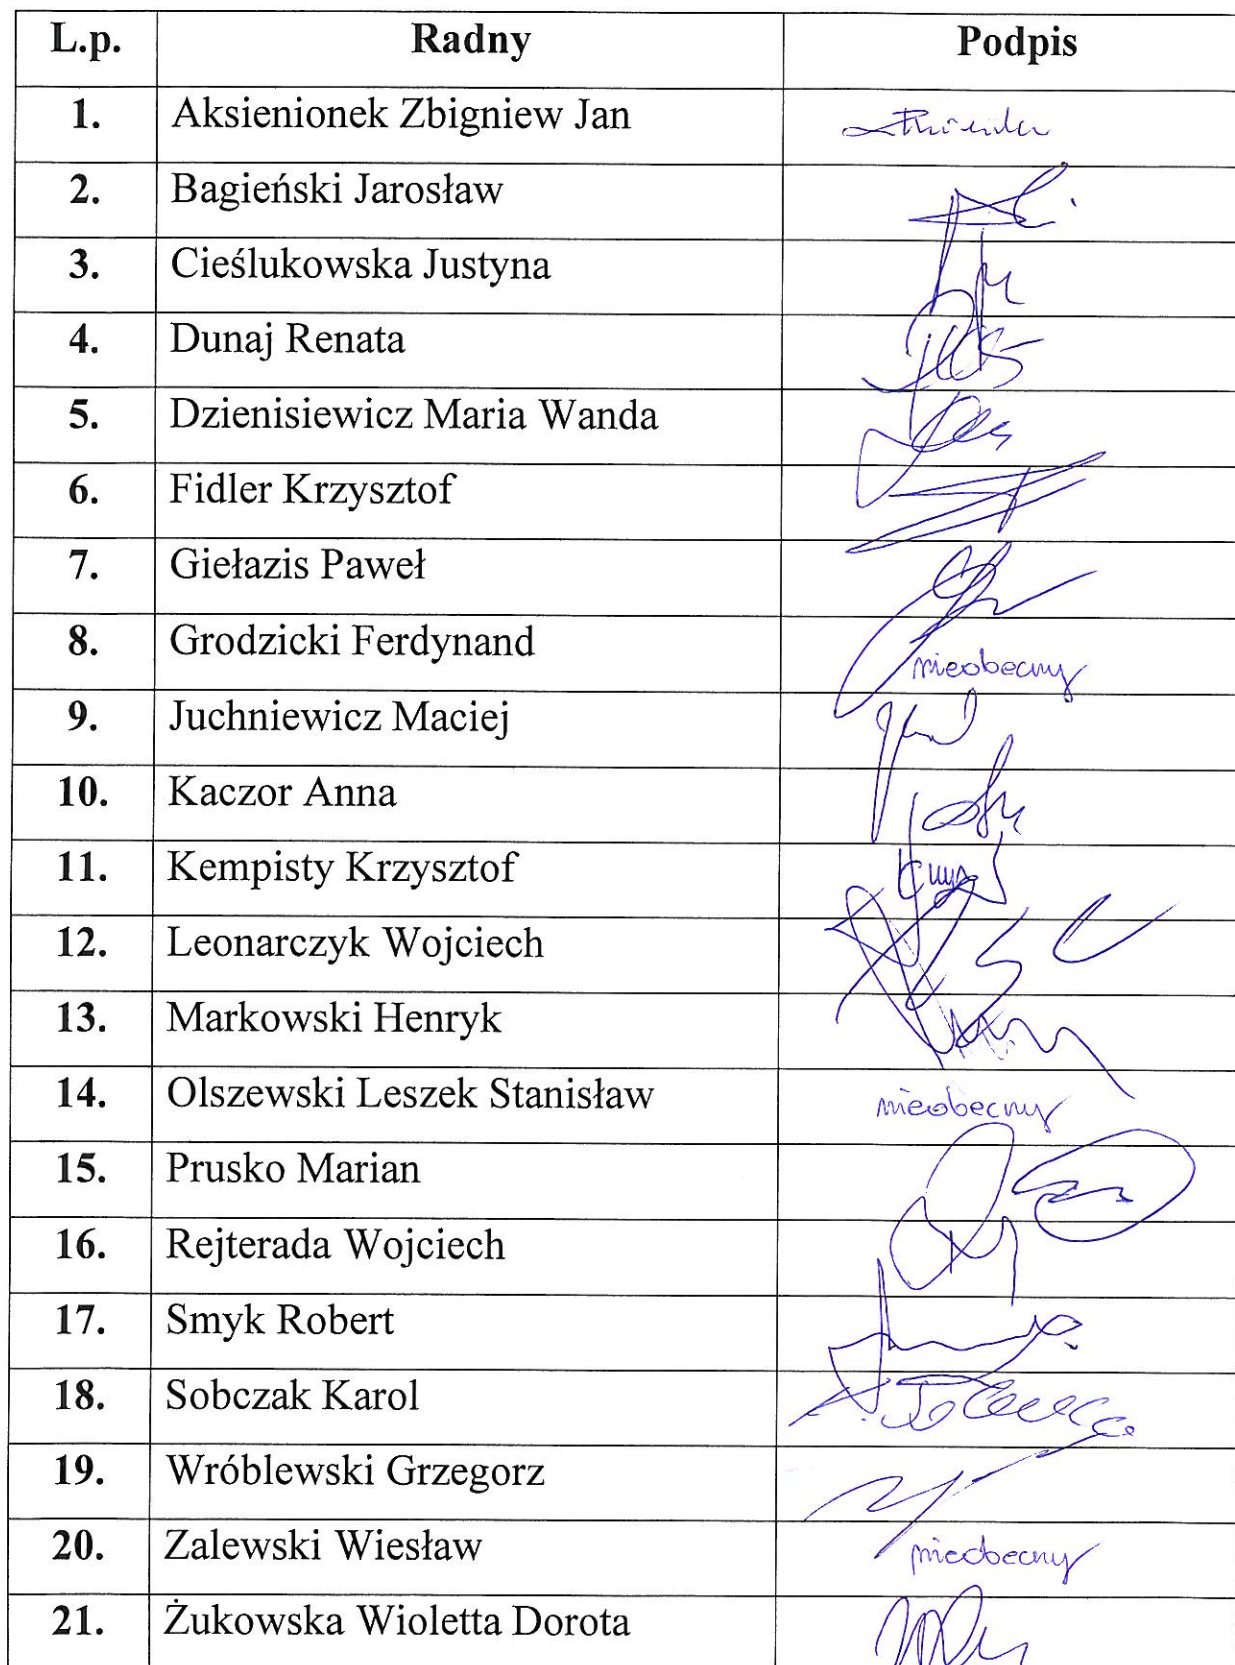 L.p. Radny Podpis
1. Aksienionek Zbigniew Jan
2. Bagieński Jarosław
3. Cieślukowska Justyna
4. Dunaj Renata
5. Dzienisiewicz Maria Wanda
6. Fidler Krzysztof
7. Giełazis Paweł
8. Grodzicki Ferdynand nieobecny
9. Juchniewicz Maciej
10. Kaczor Anna
11. Kempisty Krzysztof
12. Leonarczyk Wojciech
13. Markowski Henryk
14. Olszewski Leszek Stanisław nieobecny
15. Prusko Marian
16. Rejterada Wojciech
17. Smyk Robert
18. Sobczak Karol
19. Wróblewski Grzegorz
20. Zalewski Wiesław nieobecny
21. Żukowska Wioletta Dorota